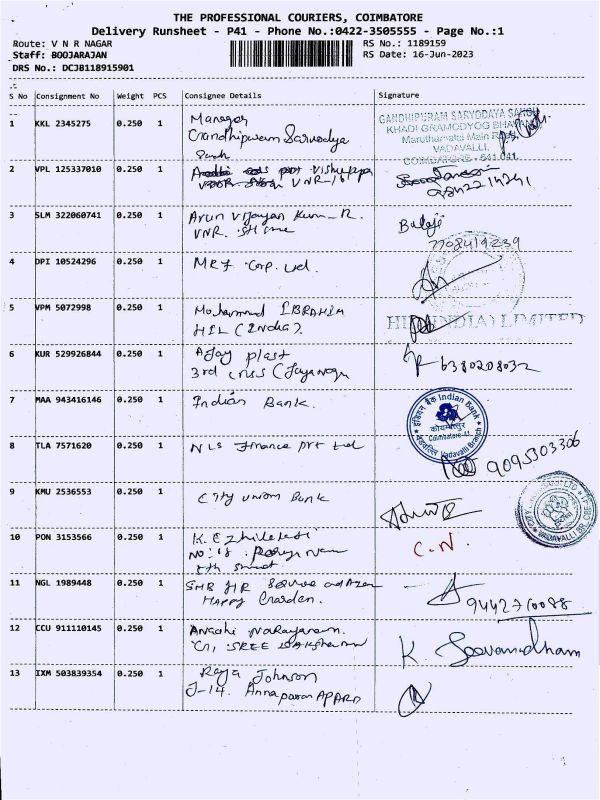 THE PROFESSIONAL COURIERS, COIMBATORE
Delivery Runsheet - P41 - Phone No.:0422-3505555 - Page No.:1
Route: V N R NAGAR RS No.: 1189159
Staff: BOOJARAJAN RS Date: 16-Jun-2023
DRS No.: DCJB118915901
S No Consignment No Weight PCS Consignee Details Signature
1 KKL 2345275 0.250 1 Manager
GANDHIPURAM SARVODAYA SANGH
KHADI GRAMODYOG BHAVAN
Maruthamalai Main Road
VADAVALLI,
COIMBATORE - 641 041.
2 VPL 125337010 0.250 1
VNR-16
9842214241
3 SLM 322060741 0.250 1 Arun Vijayan Kum-R. Balaji
VNR. 7708419239
4 DPI 10524296 0.250 1 MRF Corp. Ltd.
5 VPM 5072998 0.250 1 Mohammed IBRAHIM
HIL (India). (INDIA) LIMITED
6 KUR 529926844 0.250 1 AJay plast 6380208032
3rd cross
7 MAA 943416146 0.250 1 Indian Bank.
इंडियन बैंक Indian Bank
कोयम्बत्तूर
Coimbatore-41
Vadavalli Branch
8 TLA 7571620 0.250 1 NLS Finance Pvt Ltd 9095303306
9 KMU 2536553 0.250 1 City union Bank
VADAVALLI BR.
10 PON 3153566 0.250 1 K. Ezhilarasi C.N.
No: 18.
8th street
11 NGL 1989448 0.250 1 SMB HR
Happy Garden. 9442710088
12 CCU 911110145 0.250 1 Angahi Narayanan. K.
SREE
13 IXM 503839354 0.250 1 Raja Johnson
J-14. Annapoorna